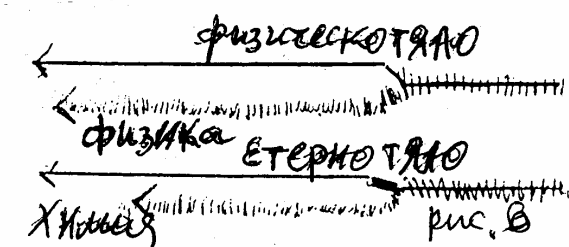 физическо тяло
физика
етерно тяло
химия
рис. В